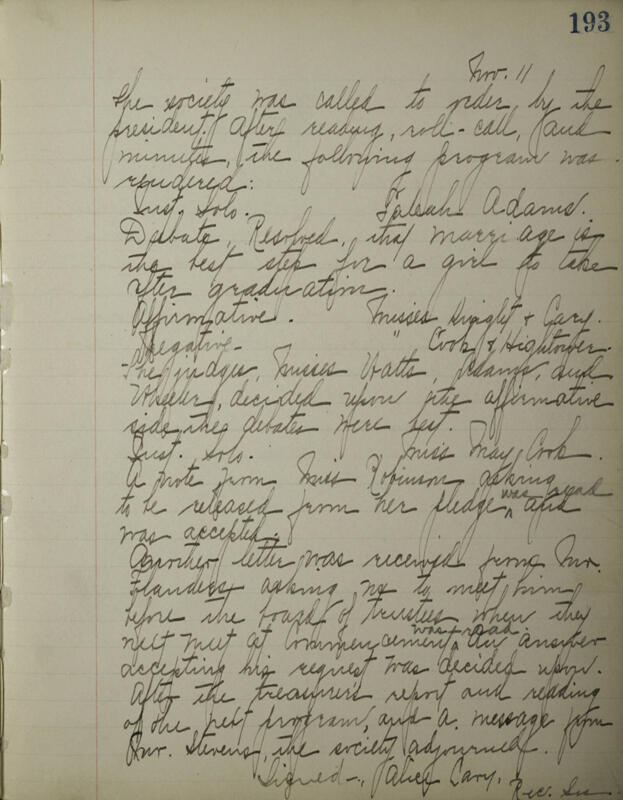 193
Nov. 11
The society was called to order by the
president. After reading, roll-call, and
minutes, the following program was
rendered:
Inst. Solo. Adams.
Debate, Resolved, that marriage is
the best step for a girl to take
after graduation.
Affirmative. Misses Dwight & Cary.
Negative - " Cook & Hightower.
The judges, Misses Watts, Adams, and
Wheeler, decided upon the affirmative
side, the debates were best.
Inst. Solo. Miss May Cook.
A note from Miss Robinson asking
to be released from her pledge was read and
was accepted.
Another letter was received from Mr.
Flanders asking us to meet him
before the board of trustees when they
next meet at Commencement was read. An answer
accepting his request was decided upon.
After the treasurer's report and reading
of the next program, and a message from
Mr. Stevens, the society adjourned.
Signed -, Alice Cary,
Rec. Sec.